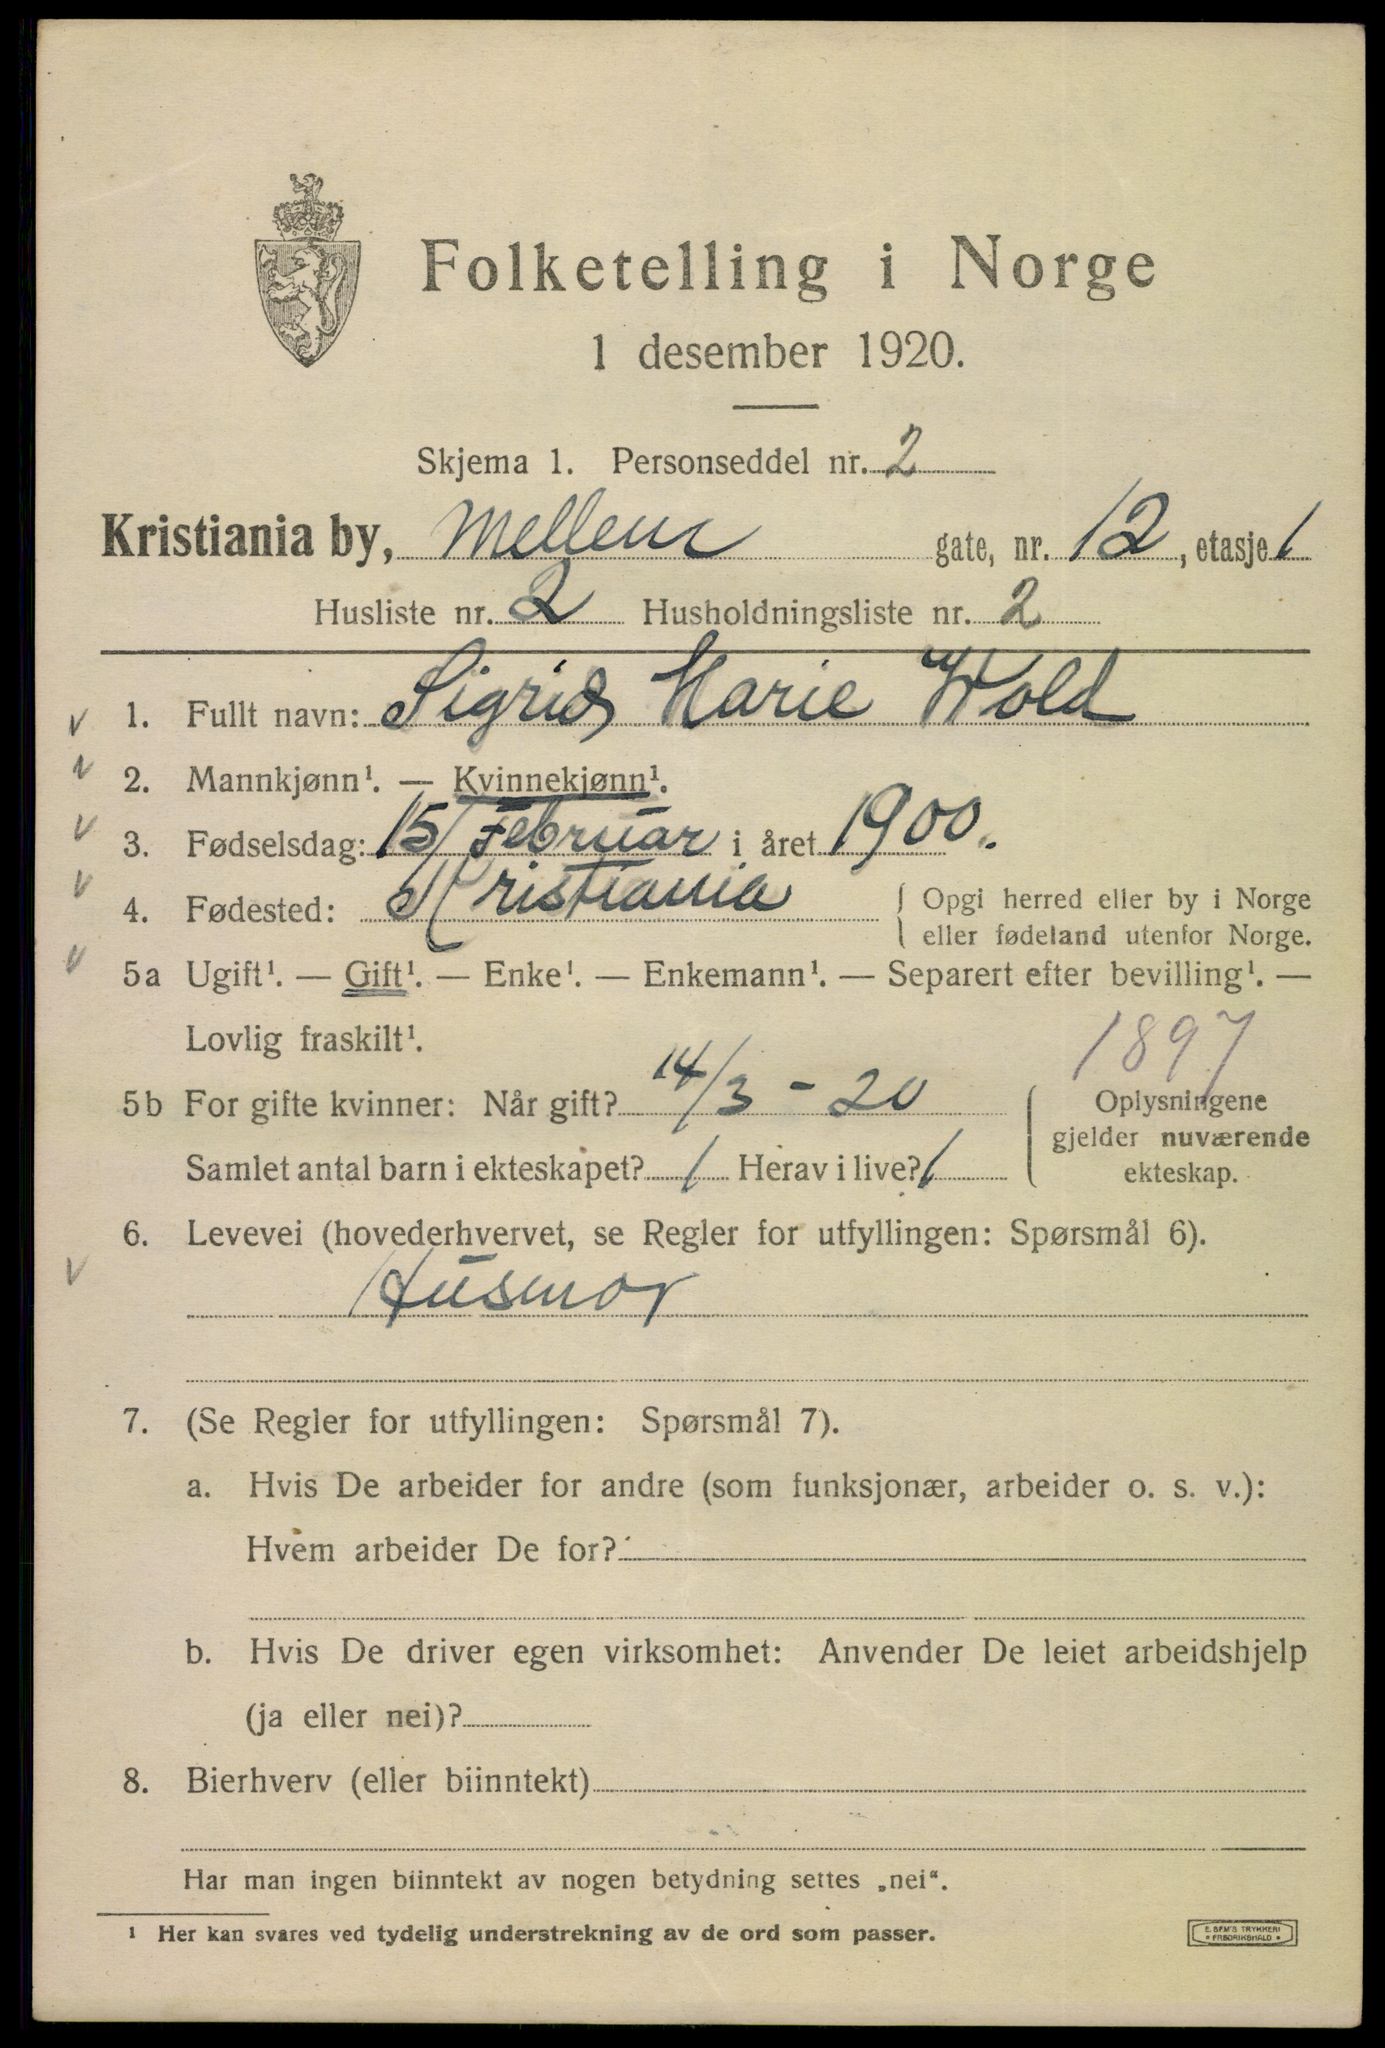 Folketelling i Norge
1 desember 1920.
Skjema 1. Personseddel nr. 2
Kristiania by, Mellem gate, nr. 12, etasje 1
Husliste nr. 2 Husholdningsliste nr. 2
1. Fullt navn: Sigrid Marie Wold
2. Mannkjønn¹. — Kvinnekjønn¹.
3. Fødselsdag: 15/ Februar i året 1900.
4. Fødested: Kristiania { Opgi herred eller by i Norge
eller fødeland utenfor Norge.
5a Ugift¹. — Gift¹. — Enke¹. — Enkemann¹. — Separert efter bevilling¹. —
Lovlig fraskilt¹.
1897
5b For gifte kvinner: Når gift? 14/3 - 20
Samlet antal barn i ekteskapet? 1 Herav i live? 1
Oplysningene
gjelder nuværende
ekteskap.
6. Levevei (hovederhvervet, se Regler for utfyllingen: Spørsmål 6).
Husmor
7. (Se Regler for utfyllingen: Spørsmål 7).
a. Hvis De arbeider for andre (som funksjonær, arbeider o. s. v.):
Hvem arbeider De for?
b. Hvis De driver egen virksomhet: Anvender De leiet arbeidshjelp
(ja eller nei)?
8. Bierhverv (eller biinntekt)
Har man ingen biinntekt av nogen betydning settes „nei“.
¹ Her kan svares ved tydelig understrekning av de ord som passer.
E. SEM'S TRYKKERI
• FREDRIKSHALD •